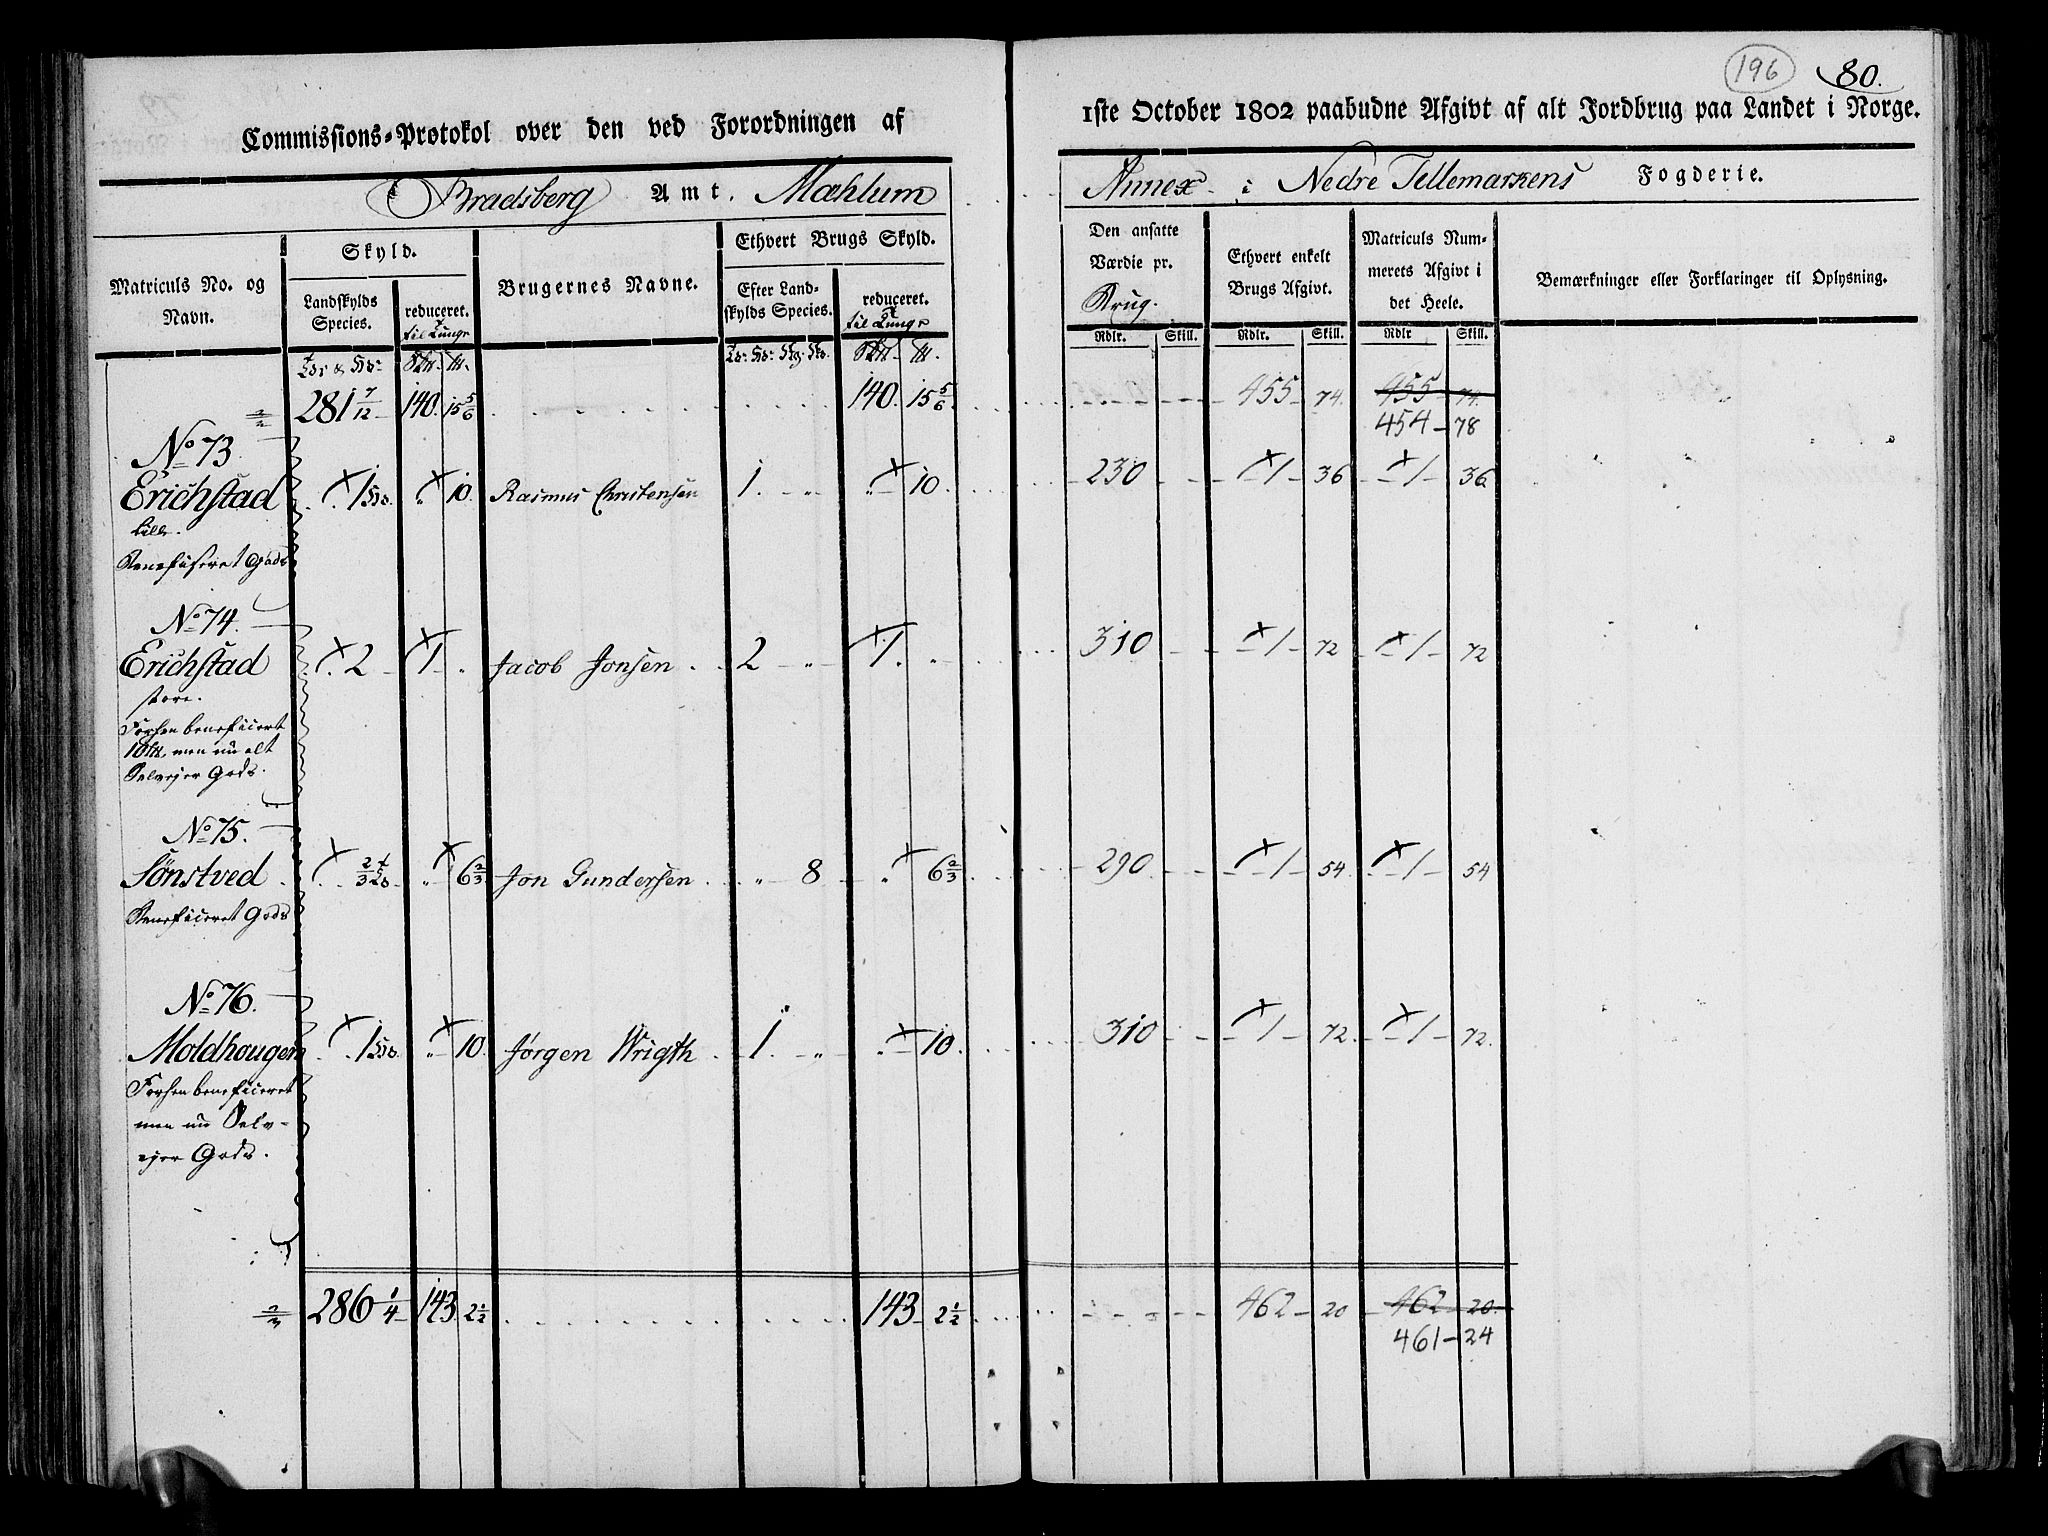 196 80.
Commissions-Protokol over den ved Forordningen af 1ste October 1802 paabudne Afgivt af alt Jordbrug paa Landet i Norge.
Bradsberg Amt. Mæhlum Annex i Nedre Tellemarkens Fogderie.
Matriculs No. og Navn.
Skyld.
Landskylds Species.
reduceret. til Tunge
Brugernes Navne.
Ethvert Brugs Skyld.
Efter Landskylds Species.
reduceret. til Tunge
Den ansatte Værdie pr. Brug.
Rdlr. Skill.
Ethvert enkelt Brugs Afgivt.
Rdlr. Skill.
Matriculs Nummerets Afgivt i det Heele.
Rdlr Skill.
Bemærkninger eller Forklaringer til Oplysning.
281 7/12 140. 15 5/6 140. 15 5/6 455 74. 455 74.
454 - 78
No 73.
Erichstad 1 10. Rasmus Christensen 1. " " 10. 230 1 36 1 36
Lille.
Beneficeret Gods
No 74.
Erichstad 2 1 " Jacob Jonsen 2 " 1. " 310 1 72 1 72
store.
Forhen beneficeret
10 , men nu alt
Selvejer Gods.
No 75.
Sønstved 2/3 " 6 2/3 Jon Gundersen " 8 " 6 2/3 290 1 54 1 54
Beneficeret Gods
No 76.
Moldhougen 1 " 10. Jørgen Wrigth 1. " " 10. 310 1 72 1 72.
Forhen beneficeret
men nu Selv-
ejer Gods.
286 1/4 143 2 1/2 143 2 1/2 462 20 462 20.
461 - 24